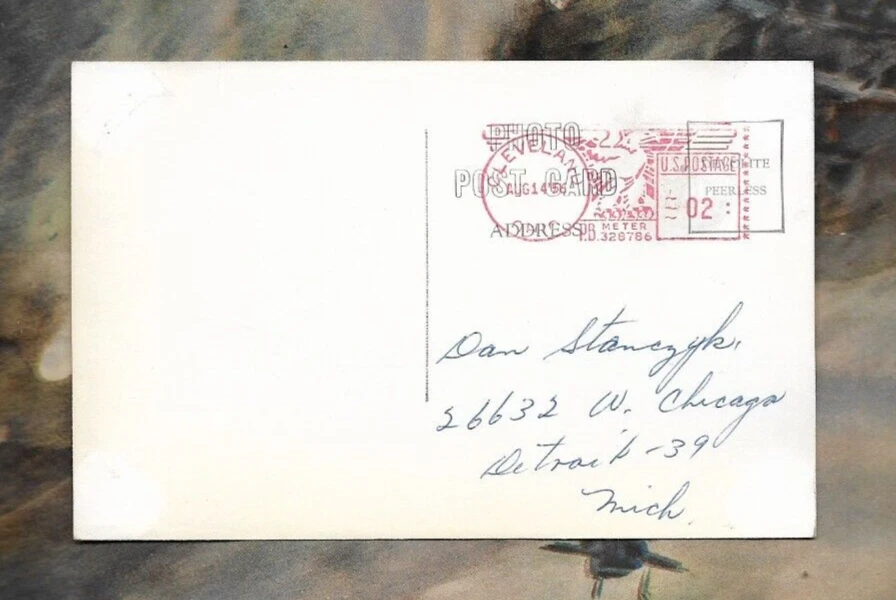 PHOTO
POST CARD
ADDRESS
CLEVELAND
AUG 14 '56
OHIO
PB METER
P.B. 328786
U.S. POSTAGE
02
PEERLESS
Dan Stanczyk.
26632 W. Chicago
Detroit - 39
Mich.